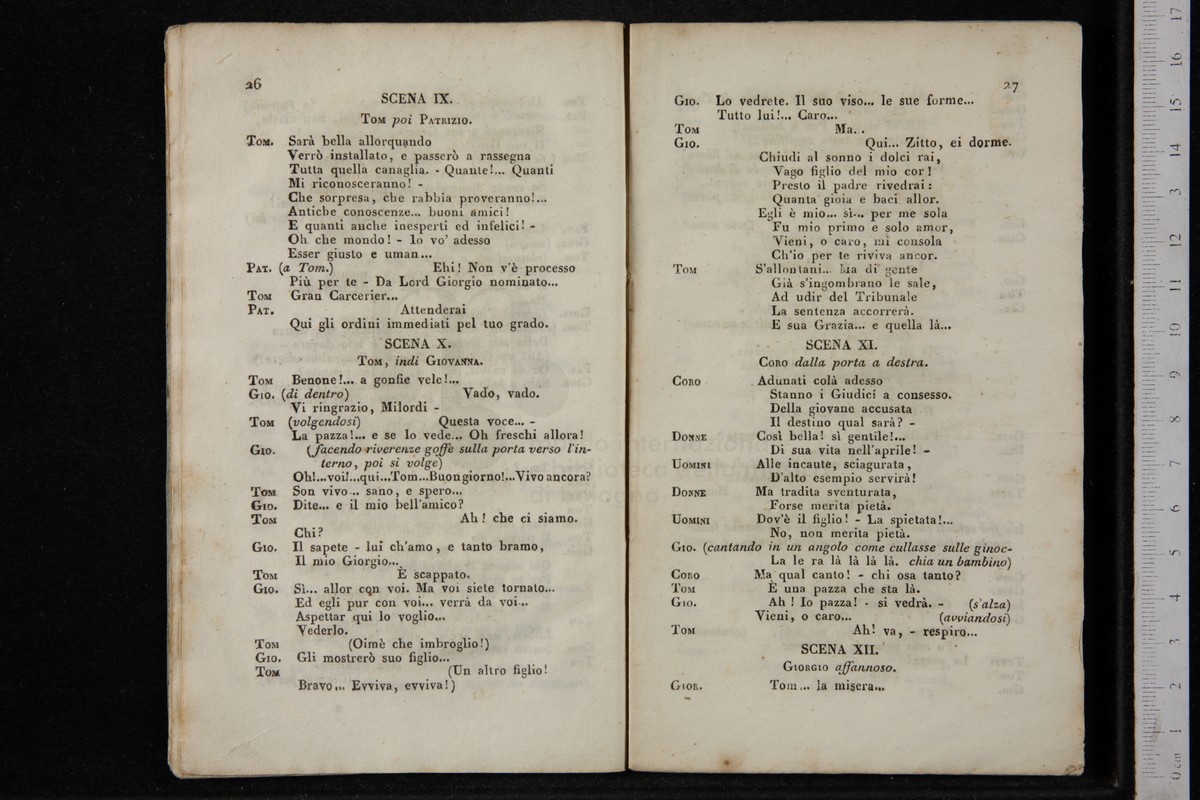 26
SCENA IX.
TOM poi PATRIZIO.
TOM. Sarà bella allorquando
Verrò installato, e passerò a rassegna
Tutta quella canaglia. - Quante!... Quanti
Mi riconosceranno! -
Che sorpresa, che rabbia proveranno!...
Antiche conoscenze... buoni amici!
E quanti anche inesperti ed infelici! -
Oh che mondo! - Io vo' adesso
Esser giusto e uman...
PAT. (a Tom.) Ehi! Non v'è processo
Più per te - Da Lord Giorgio nominato...
TOM Gran Carcerier...
PAT. Attenderai
Qui gli ordini immediati pel tuo grado.
SCENA X.
TOM, indi GIOVANNA.
TOM Benone!... a gonfie vele!...
GIO. (di dentro) Vado, vado.
Vi ringrazio, Milordi -
TOM (volgendosi) Questa voce... -
La pazza!... e se lo vede... Oh freschi allora!
GIO. (facendo riverenze goffe sulla porta verso l'in-
terno, poi si volge)
Oh!...voi!...qui...Tom...Buongiorno!...Vivo ancora?
TOM Son vivo... sano, e spero...
GIO. Dite... e il mio bell'amico?
TOM Ah! che ci siamo.
Chi?
GIO. Il sapete - lui ch'amo, e tanto bramo,
Il mio Giorgio...
TOM È scappato.
GIO. Sì... allor con voi. Ma voi siete tornato...
Ed egli pur con voi... verrà da voi...
Aspettar qui lo voglio...
Vederlo.
TOM (Oimè che imbroglio!)
GIO. Gli mostrerò suo figlio...
TOM (Un altro figlio!
Bravo... Evviva, evviva!)
27
GIO. Lo vedrete. Il suo viso... le sue forme...
Tutto lui!... Caro...
TOM Ma..
GIO. Qui... Zitto, ei dorme.
Chiudi al sonno i dolci rai,
Vago figlio del mio cor!
Presto il padre rivedrai:
Quanta gioia e baci allor.
Egli è mio... sì... per me sola
Fu mio primo e solo amor,
Vieni, o caro, mi consola
Ch'io per te riviva ancor.
TOM S'allontani... Ma di gente
Già s'ingombrano le sale,
Ad udir del Tribunale
La sentenza accorrerà.
E sua Grazia... e quella là...
SCENA XI.
CORO dalla porta a destra.
CORO Adunati colà adesso
Stanno i Giudici a consesso.
Della giovane accusata
Il destino qual sarà? -
DONNE Così bella! sì gentile!...
Di sua vita nell'aprile! -
UOMINI Alle incaute, sciagurata,
D'alto esempio servirà!
DONNE Ma tradita sventurata,
Forse merita pietà.
UOMINI Dov'è il figlio! - La spietata!...
No, non merita pietà.
GIO. (cantando in un angolo come cullasse sulle ginoc-
La le ra là là là là. chia un bambino)
CORO Ma qual canto! - chi osa tanto?
TOM È una pazza che sta là.
GIO. Ah! Io pazza! - si vedrà. - (s'alza)
Vieni, o caro... (avviandosi)
TOM Ah! va, - respiro...
SCENA XII.
GIORGIO affannoso.
GIOR. Tom... la misera...
0 cm 1 2 3 4 5 6 7 8 9 10 11 12 13 14 15 16 17